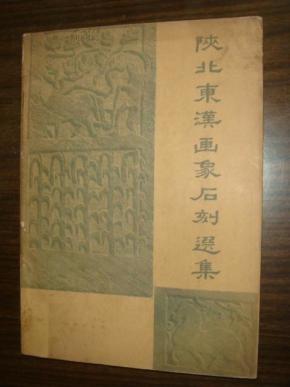 陝北東漢画象石刻選集